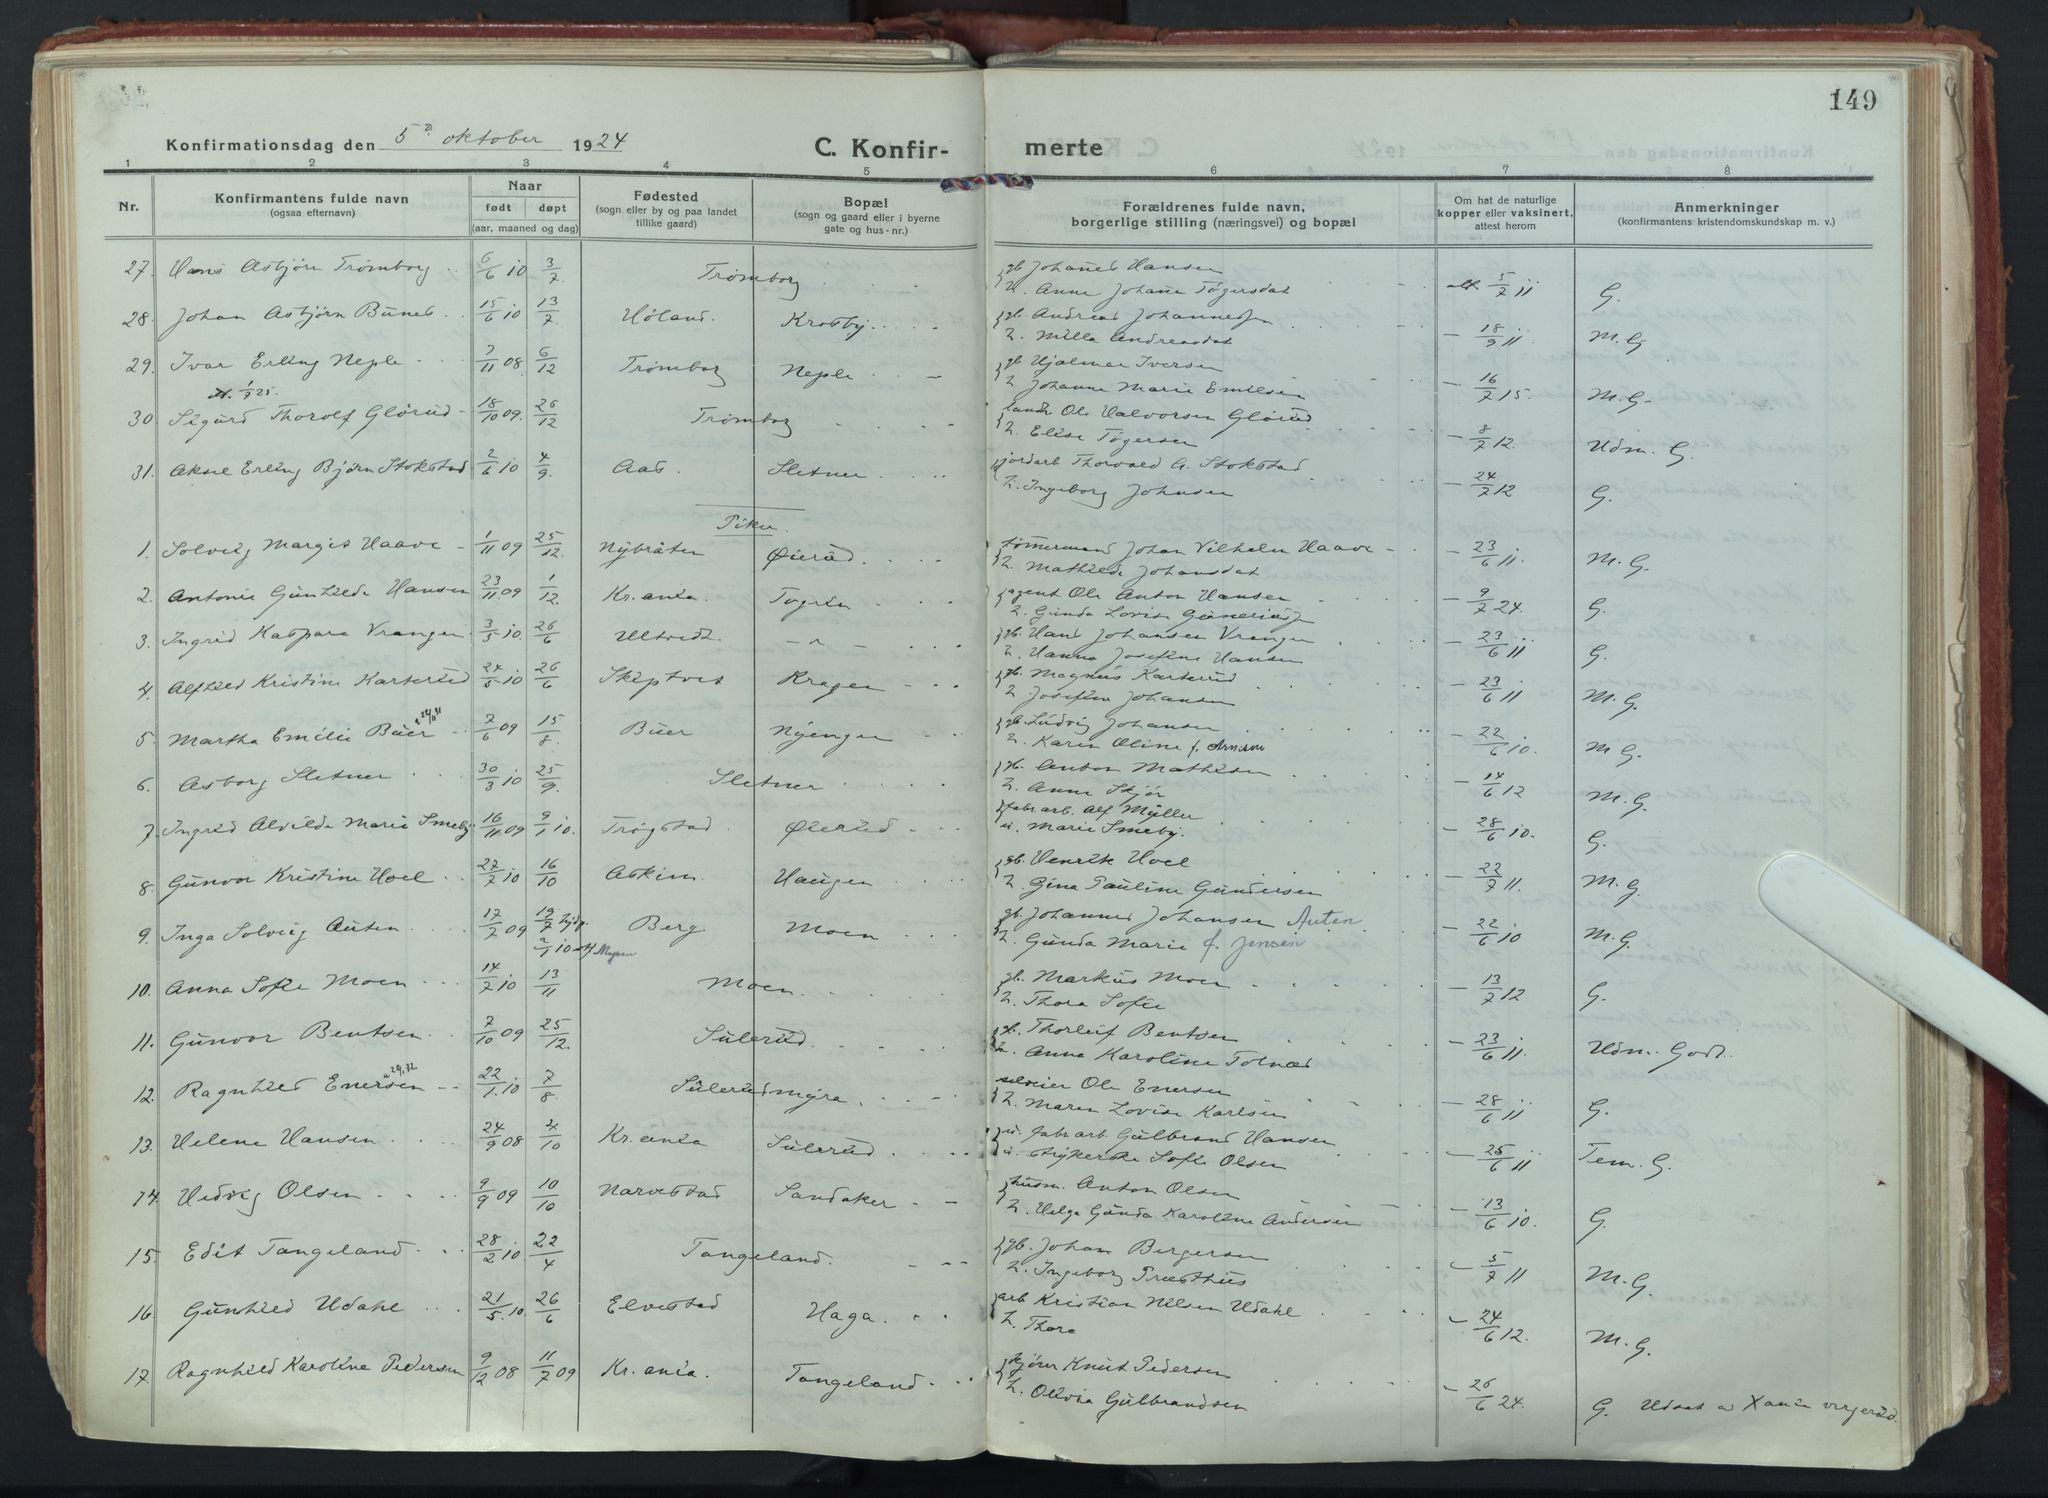 149
Konfirmationsdag den 5 oktober 1924
C. Konfir- merte
1 2 3 4 5 6 7 8
Nr. Konfirmantens fulde navn (ogsaa efternavn) Naar født døpt (aar, maaned og dag) Fødested (sogn eller by og paa landet tillike gaard) Bopæl (sogn og gaard eller i byerne gate og hus-nr.) Forældrenes fulde navn, borgerlige stilling (næringsvei) og bopæl Om hat de naturlige kopper eller vaksinert, attest herom Anmerkninger (konfirmantens kristendomskundskap m. v.)
27. Hans Asbjørn Trømborg 6/6 10 3/7. Trømborg gb Johanes Hansen
Anne Johane Tøgersdat att. 5/7 11 G.
28. Johan Asbjørn Bunes 15/6 10 13/7. Høland. Krosby gb. Andreas Johannessen
Milla Andreasdat 18/9 11 M. G
29. Ivar Erling Neple 7/11 08. 6/12 Trømborg Neple gb Hjalmar Iversen
Johanne Marie Emilsen 16/7 15. M. G.
1/9 25.
30. Sigurd Thorolf Glørud 18/10 09. 26/12 Trømborg landh Ole Halvorsen Glørud
Elise Tøgersen 8/7 12. Udm. G.
31. Aksel Erling Bjørn Stokstad 2/6 10 4/9. Aas. Sletner jordarb Thorvald A. Stokstad
Ingeborg Johnsen 24/7 12 G.
Piker.
1. Solveig Margit Haave 1/11 09 25/12. Nybråten Øierud tømermand Johan Vilhelm Haave
Mathilde Johansdat 23/6 11. M. G.
2. Antonie Gunhilde Hansen 23/11 09 1/12. Kr.ania. Togrin agent Ole Anton Hansen
Gunda Lovise 9/7 24. G.
3. Ingrid Kaspara Vrangen 3/5 10. 26/6 Ultvedt. - " - gb. Hans Johansen Vrangen
Hanna Josefine Hansen 23/6 11 G.
4. Alfhild Kristine Karterud 24/5 10 26/6 Skiptvet Kragen gb. Magnus Karterud
Josefine Johansen 23/6 11 M. G.
5. Martha Emilie Buer 7/6 09 15/8. Buer Nyengen gb. Ludvig Johansen
Karen Oline f. Arnesen 22/6 10. M. G.
6. Asborg Sletner 30/3 10 25/9. Sletner gb. Anton Mathisen
Anne Skjør 14/6 12 M. G.
7. Ingrid Alvilde Marie Smeby 16/11 09 9/1 10. Trøgstad. Øierud fabr arb. Alf Müller
u. Marie Smeby. 28/6 10. G.
8. Gunvor Kristine Hoel 27/7 10 16/10 Askim. Haugen gb. Henrik Hoel
Gina Pauline Gundersen 22/7 11. M. G.
9. Inga Solveig Auten 17/7 09 19/7 hjd 2/1 10 Berg. Moen gb. Johannes Johansen Auten
Gunda Marie f. Jensen 22/6 10 M. G.
10. Anna Sofie Moen 14/7 10 13/11 Moen gb. Markus Moen
Thora Sofie 13/7 12 G.
11. Gunvor Bentsen. 7/10 09 25/12. Sulerud. gb. Thorleif Bentsen
Anna Karoline Tolnæs 23/6 11. Udm. Godt.
12. Ragnhild Enersen 22/1. 10 7/8 Sulerudmyra selveier Ole Enersen
Maren Lovise Karlsen 28/6 11 G.
13. Helene Hansen 24/9 08 2/10 Kr.ania Sulerud u. fabr arb. Gulbrand Hansen
u. strykerske Sofie Olsen 25/6 11 Tem. G.
14. Hedvig Olsen 9/9 09 10/10 Narvestad Sandaker husm. Anton Olsen
Helga Gunda Karoline Andersen 13/6 10. G.
15. Edit Tangeland 28/2 10. 22/4 Tangeland. gb. Johan Bergersen
Ingeborg Præsthus 5/7 11 M. G.
16. Gunhild Udahl 21/5. 10. 26/6 Elvestad Haga. arb Kristian Nilsen Udahl
Thora 24/6 12. M. G.
17. Ragnhild Karoline Pedersen 9/12 08 11/7 09 Kr.ania. Tangeland kjører Knut Pedersen
Olivia Gulbrandsen 26/6 24. G. Udsat a Xania vergeråd.